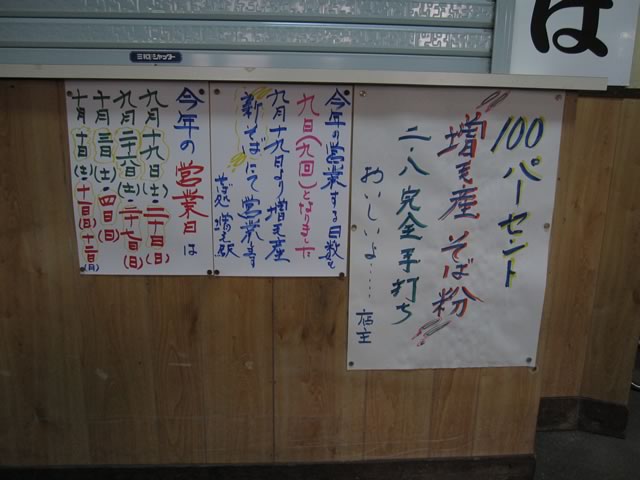 三和シャッター
ば
100パーセント
増毛産そば粉
二・八完全手打ち
おいしいよ……
店主
今年の営業する日数も
九日(九回)となりました
九月十九日より増毛産
新そばにて営業です
そば処 増毛駅
今年の営業日は
九月十九日(土)・二十日(日)
九月二六日(土)・二十七日(日)
十月三日(土)・四日(日)
十月十日(土)十一日(日)十二日(月)